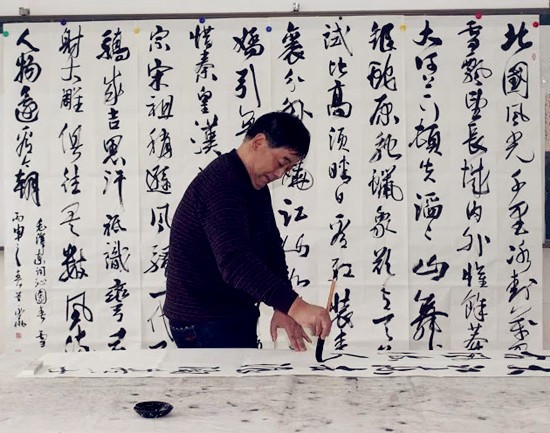 北國風光千里冰封萬
雪飄望長城内外惟餘莽
大河上下頓失滔滔山舞
銀蛇原馳蠟象欲與天
試比高須晴日看紅裝素
裹分外嬈江山如
嬌引無
惜秦皇漢
宗宋祖稍遜風騷一代
驕成吉思汗祇識彎弓
射大雕俱往矣數風流
人物還看今朝
毛澤東詞沁園春雪
丙申之春